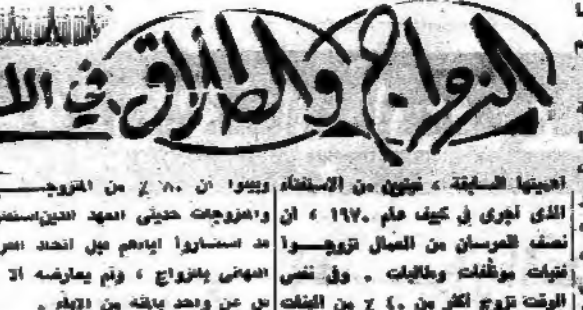 الزواج والطلاق في
السابقة ، نتبين من الاستفتاء
الذى أجرى في كييف عام ١٩٧٠ ، أن
نصف العرسان من العمال تزوجـــوا
فتيات موظفات وطالبات . وفى نفس
الوقت تزوج أكثر من ٤٠ ٪ من البنات
وبينوا ان ٨٠ ٪ من
والمزوجات حديثى العهد
قد استشاروا اباءهم قبل اتخاذ
النهائى بالزواج ، ولم يعارضه الا
عن واحد بالمئة من الاباء .